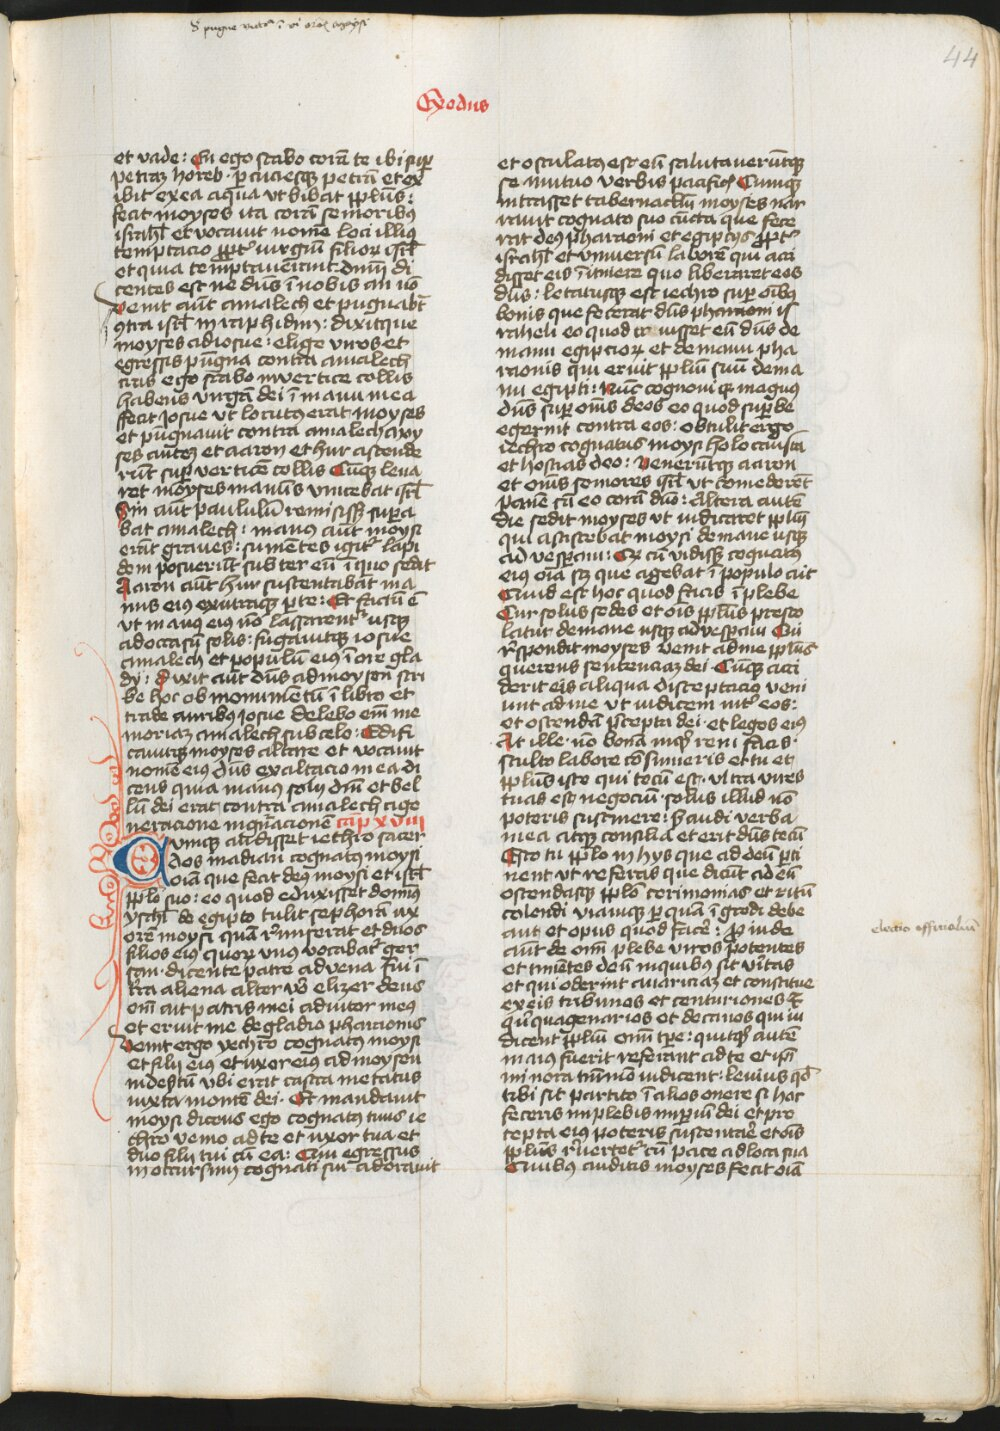 Exodus
44
et vade : En ego stabo corā te ibi suꝑ
petraꝫ horeb · ꝑcuciesqꝫ petrā et ex
ibit ex ea aqua ut bibat ppl̄us :
fecit moyses ita corā senioribꝰ
israhl̄ et vocauit nomē loci illiꝰ
temptacio ꝓpt̄ iurgiū filioꝝ isrl̄
et quia temptauerunt dnm̄ di
centes est ne dn̄s ī nobis an nō
venit aūt amalech et pugnabt̄
ꝯtra isrl̄ in raphidim : dixitque
moyses ad iosue : elige viros et
egressus pugna contra amalech
cras ego stabo in vertice collis
habens virgā dei ī manu mea
ffecit Josue ut locutꝰ erat moyses
et pugnauit contra amalech moy
ses autē et aaron et hur ascende
rūt suꝑ vertice collis Cūqꝫ leua
ret moyses manus vincebat isrl̄
Sin aūt paululū remisissꝫ suꝑa
bat amalech : manꝰ aūt moysi
erāt graues : sumētes igit̄ lapi
dem posuerūt subter eū ī quo sedit
Aaron aūt hur sustentabāt ma
nus eiꝰ ex utraqꝫ ꝑte : Et factū ē
ut manꝰ eiꝰ nō lassarent̄ usqꝫ
ad occasū solis : fugauitqꝫ iosue
amalech et populū eiꝰ ī ore gla
dij : dixit aūt dn̄s ad moysen scri
be hoc ob monumētū ī libro et
trade auribꝰ iosue delebo em̄ me
moriaꝫ amalech sub celo : Edifi
cauitqꝫ moyses altare et vocauit
nomē eiꝰ dn̄s exaltacio mea di
cens quia manꝰ soliꝰ dn̄i et bel
lū dei erat contra amalech a ge
neracione in gn̄acionem cap xviii
Cumqꝫ audisset iethro sacer
dos madian cognatꝰ moysi
oīa que fecit deꝰ moysi et isrl̄
ppl̄o suo : eo quod eduxisset dominꝰ
ysrl̄ de egipto tulit sephorā ux
orē moysi quā r̄miserat et duos
filios eiꝰ quoꝝ unꝰ vocabat̄ ger
san · dicente patre aduena fui ī
tr̄a aliena alter v̄o elizer deus
em̄ ait patris mei adiutor meꝰ
et eruit me de gladio pharaonis
venit ergo yechro cognatꝰ moysi
et filij eiꝰ et uxor eiꝰ ad moysen
in destū ubi erat castra metatus
iuxta montē dei · Et mandauit
moysi dicens ego cognatꝰ tuus ie
chro venio ad te et uxor tua et
duo filij tui cū ea : Qui egressus
in occursum cognati sui adorauit
et osculatꝰ est eū salutauerūtqꝫ
se mutuo verbis pacificꝭ Cumqꝫ
intrasset tabernaclm̄ moyses nar
rauit cognato suo cūcta que fece
rat deꝰ pharaoni et egipcijs ꝓpt̄
israhl̄ et vniuersū laborē qui acci
disset eis ī itinere quo liberaret eos
dn̄s : letatusqꝫ est iechro suꝑ oībꝰ
bonis que fecerat dn̄s pharaoni is
raheli eo quod eruisset eū dn̄s de
manu egipcioꝝ et de manu pha
raonis qui eruit ppl̄m suū de ma
nu egipti : Nūc cognoui qꝫ magnꝰ
dn̄s suꝑ om̄s deos eo quod suꝑbe
egerint contra eos : obtulit ergo
iechro cognatus moysi holocausta
et hostias deo : venerūtqꝫ aaron
et om̄s seniores isrl̄ ut comederēt
panē cū eo corā dn̄o : Altera autē
die sedit moyses ut iudicaret ppl̄m
qui assistebat moysi de mane usqꝫ
ad vesperam : Qꝫ cū vidissꝫ cognatꝰ
eiꝰ oīa scꝫ que agebat ī populo ait
Quid est hoc quod facis ī plebe
Cur solus sedes et oīs ppl̄us presto
latur de mane usqꝫ ad vesperam Cui
r̄spondit moyses venit ad me ppl̄us
querens sentenciaꝫ dei · Cūqꝫ acci
derit eis aliqua disceptacio veni
unt ad me ut iudicem int̄ eos :
et ostendā p̄cepta dei · et leges eiꝰ
At ille · nō bonā inqt̄ rem facis ·
stulto labore cōsumeris et tu et
ppl̄us iste qui tecū est · ultra vires
tuas est negociū · solus illud nō
poteris sustinere : Sꝫ audi verba
mea atqꝫ consilia et erit dn̄s tecū
Esto tu ppl̄o in hys que ad deū ꝑti
nent ut referas que dicūt ad eū
ostendasqꝫ ppl̄o cerimonias et ritū
colendi viamqꝫ ꝑ quā īgredi debe
ant et opus quod facēr : Proinde
aūt de omī plebe viros potentes
et timētes deū in quibꝰ sit v̄itas
et qui oderint auariciaꝫ et constitue
ex eis tribunos et centuriones et
qūquagenarios et decanos qui iu
dicent ppl̄m omī tp̄e : quitqꝫ autē
maiꝰ fuerit referant ad te et ip̄i
minora tm̄mō iudicent : leuius qd̄
tibi sit partito ī alios onere si hoc
feceris implebis imperiū dei et pre
cepta eiꝰ poteris sustentar̄ et oīs
ppl̄us r̄uertet̄ cū pace ad loca sua
Quibꝰ auditis moyses fecit oīa
electio officialiū